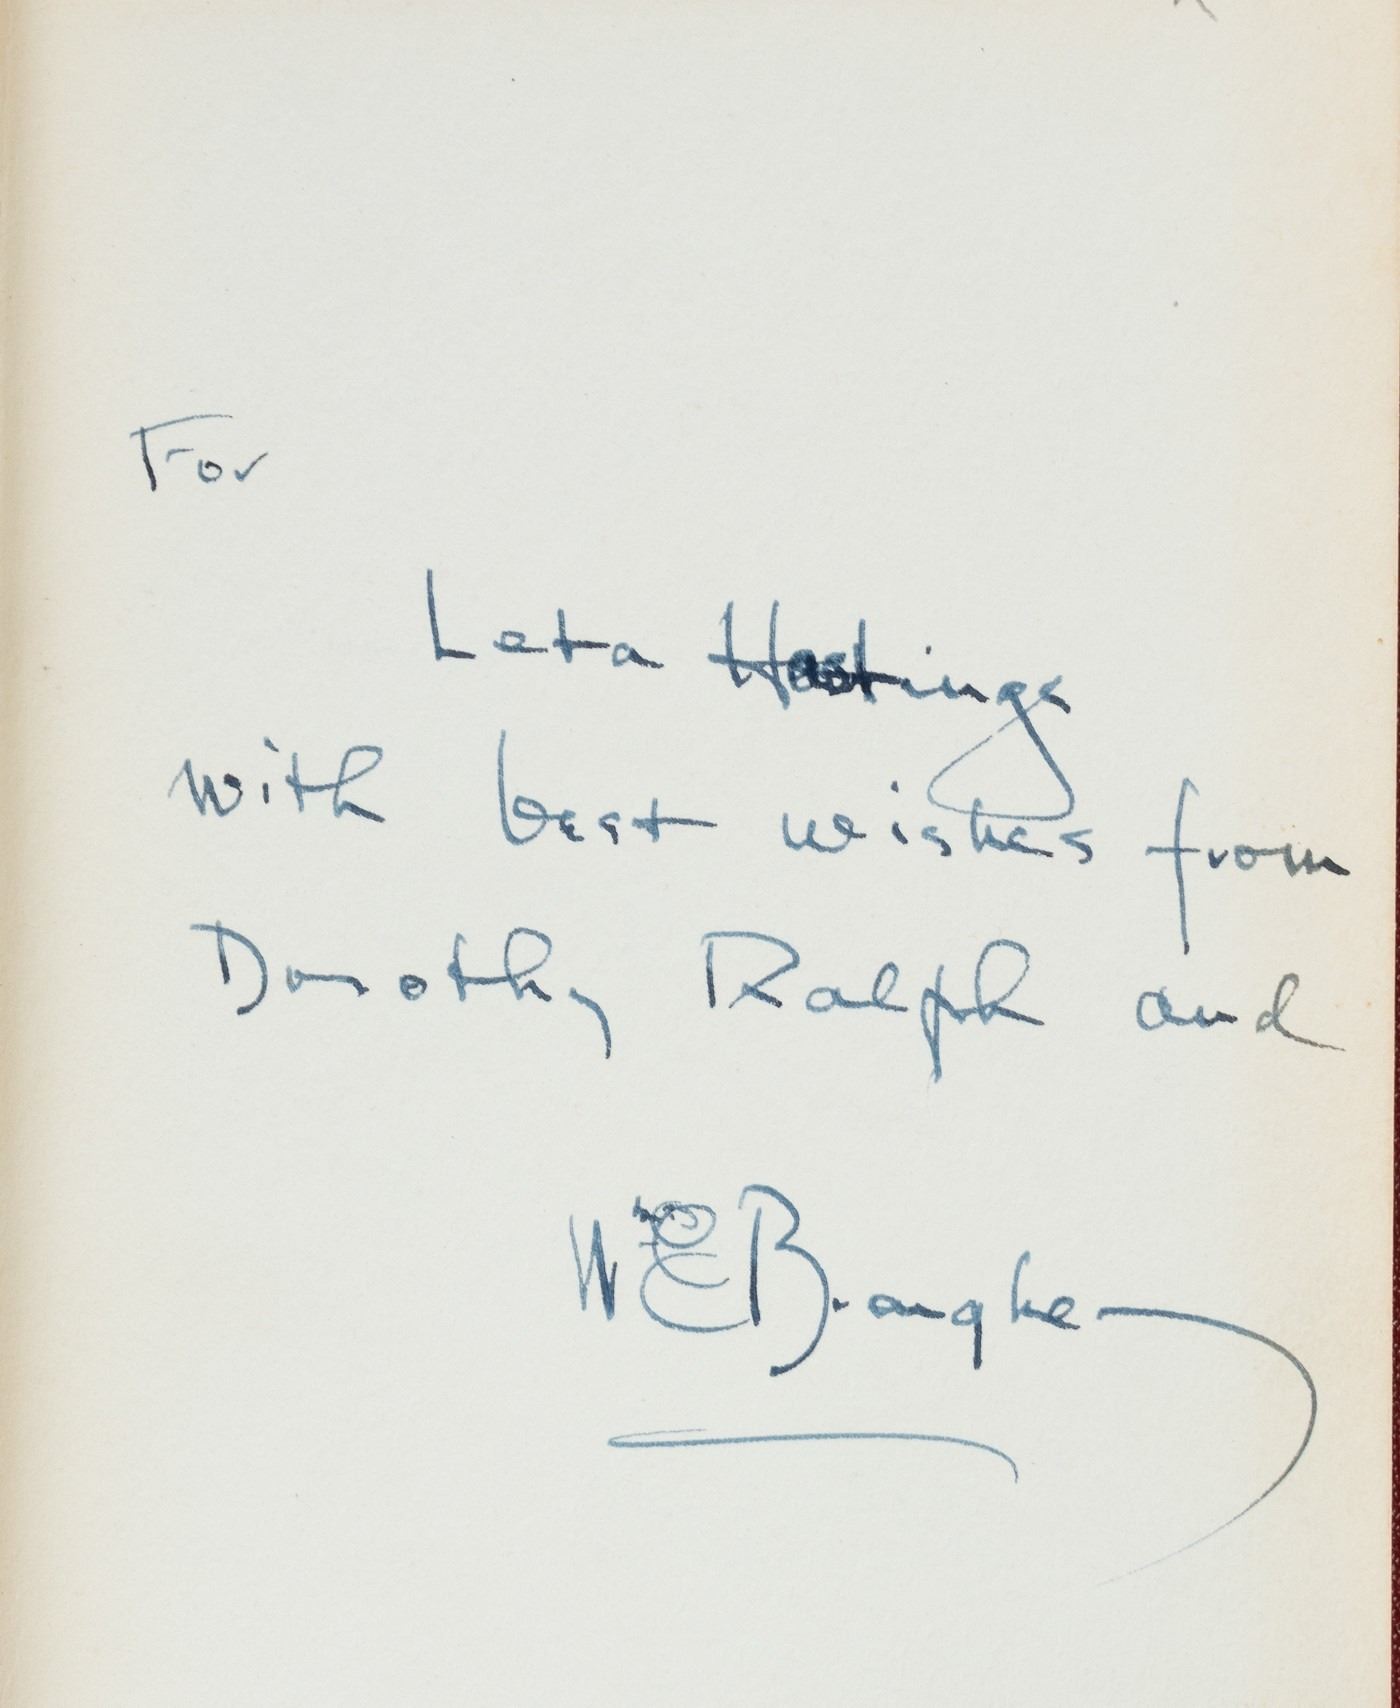 For
Leta Hastings
with best wishes from
Dorothy Ralph and
Wm E Baugher